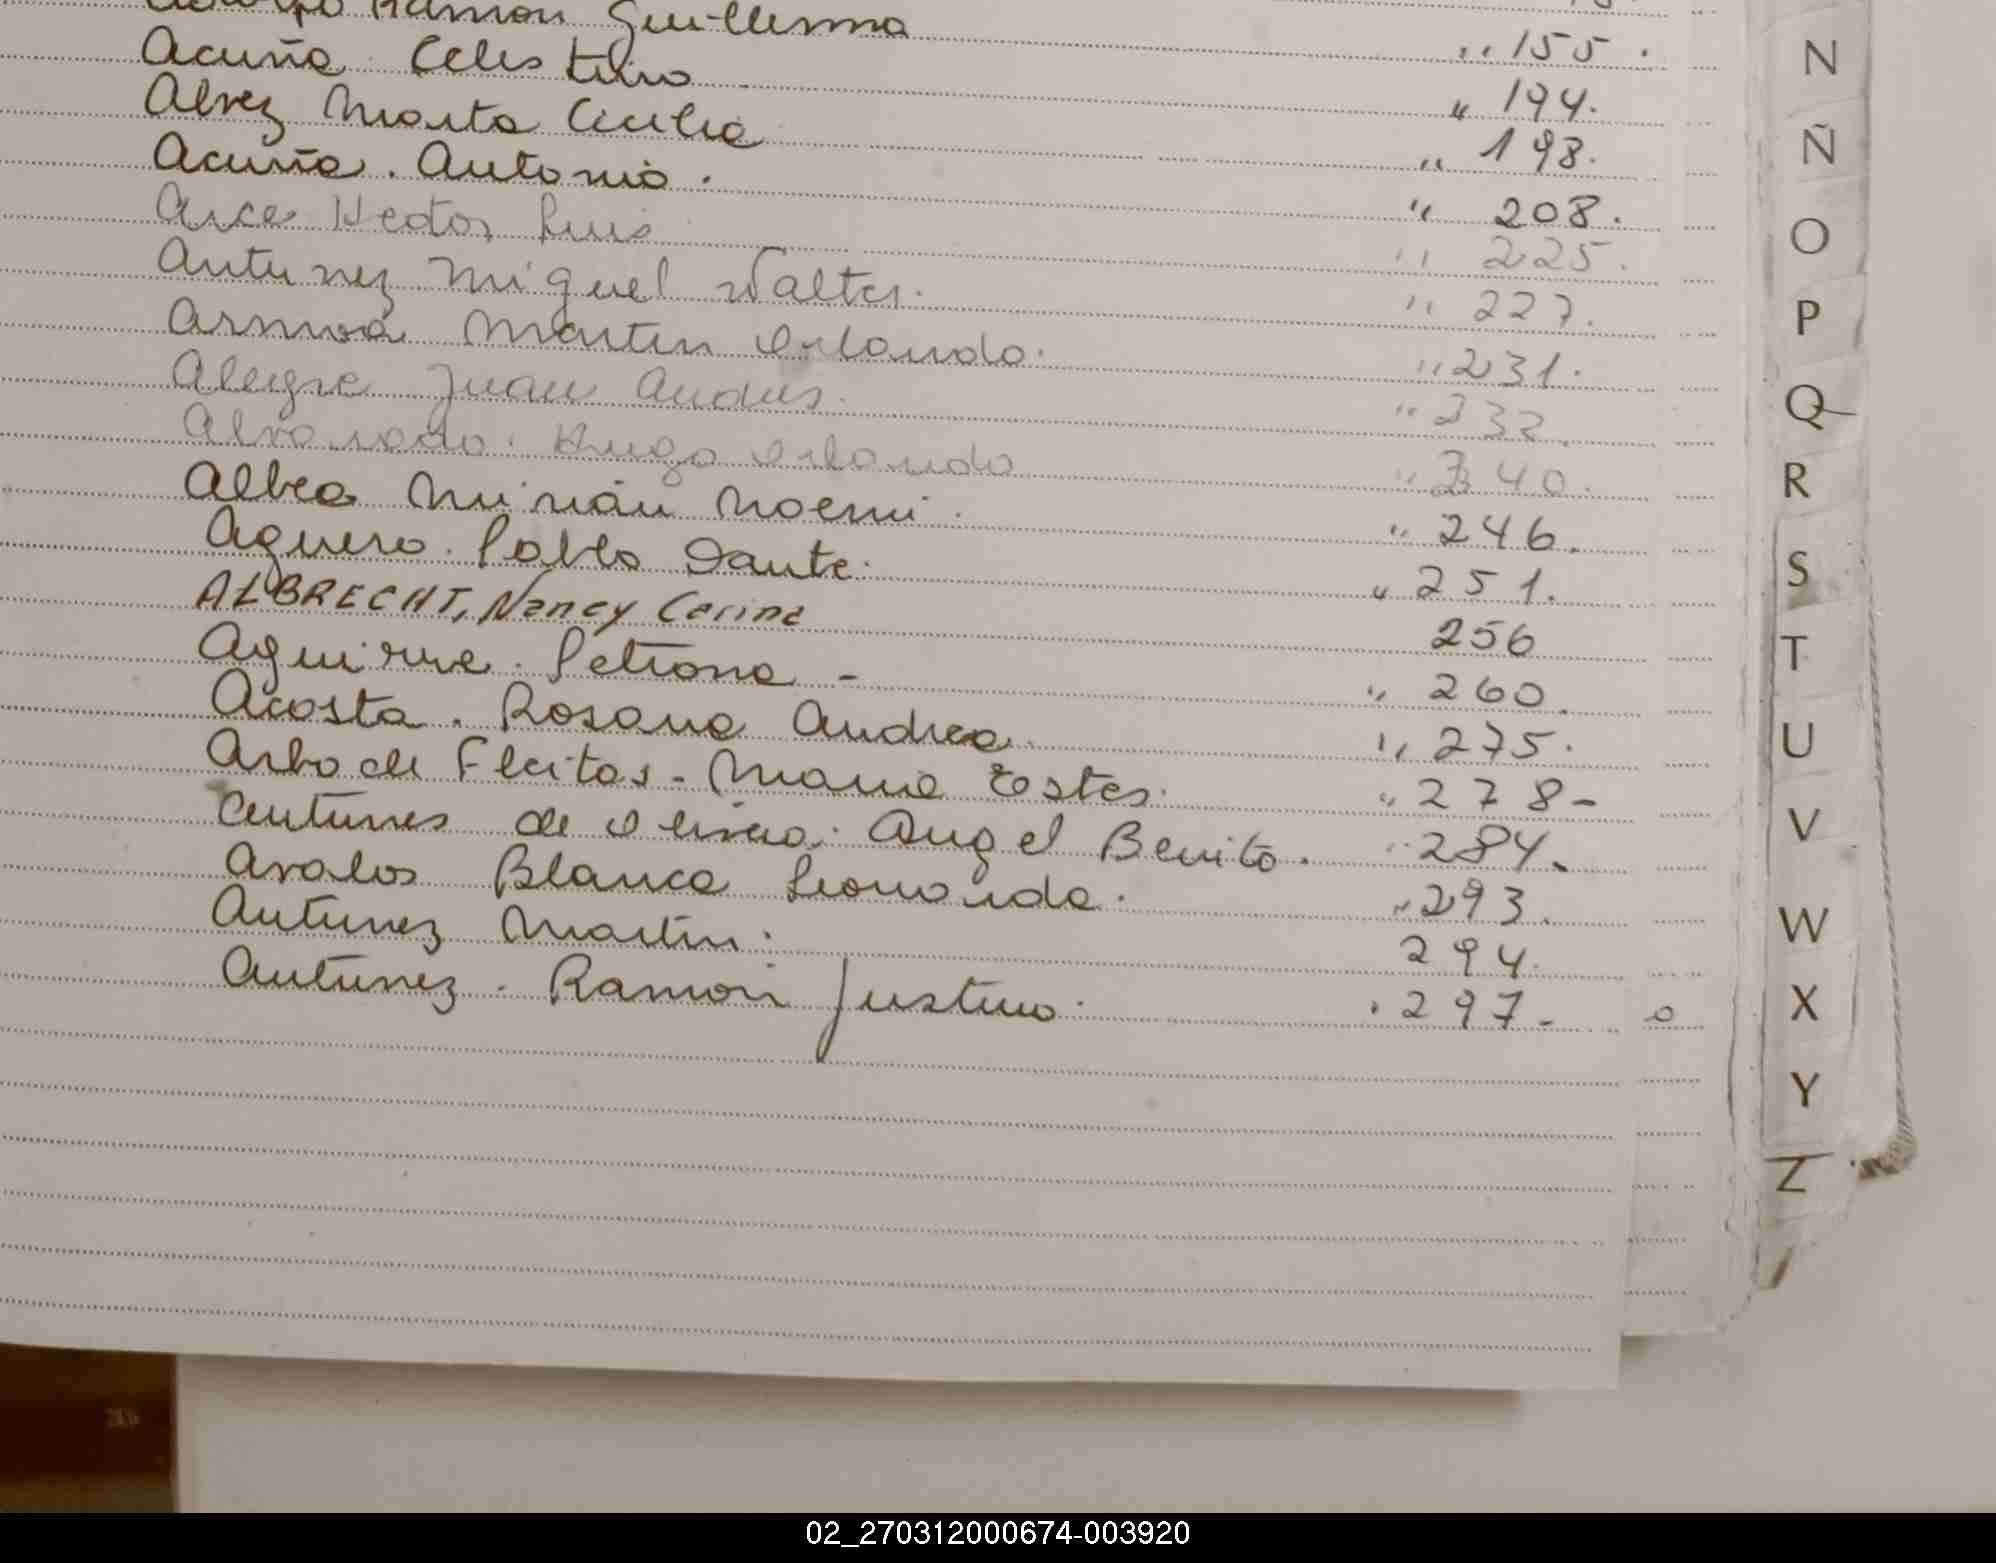 Ramon Guillermo " 155.
Acuña Celestino " 194.
Alvez Marta Cecilia " 198.
Acuña. Antonio. " 208.
Arce Hector Luis " 225.
Antunez Miguel Walter. " 227.
Armoa Martin Orlando. " 231.
Alegre Juan Andres. " 232.
Alvarado. Hugo Orlando " 240.
Albea Mirián Noemi. " 246.
Aguero. Pablo Dante. " 251.
ALBRECHT, Nancy Carina 256
Aguirre. Petrona - " 260.
Acosta. Rosana Andrea. " 275.
Arbo de Fleitas - Maria Ester. " 278-
Antunes de Olivera. Angel Benito. " 284.
Avalos Blanca Leonarda. " 293.
Antunez Martin. 294.
Antunez. Ramon Justino. 297-
N
Ñ
O
P
Q
R
S
T
U
V
W
X
Y
Z
02_270312000674-003920